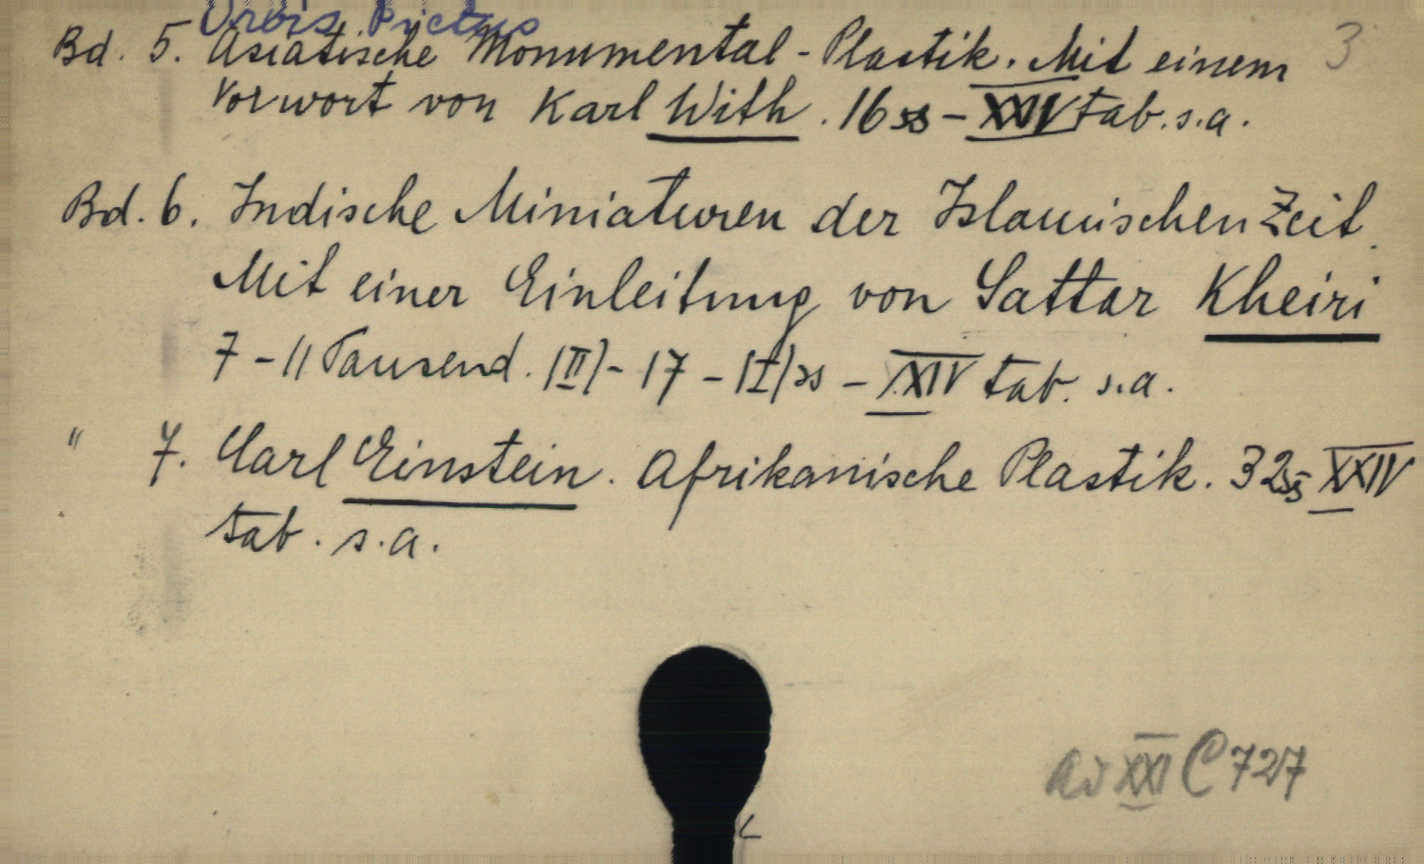 Orbis Pictus
3
Bd. 5. Asiatische Monumental-Plastik. Mit einem
Vorwort von Karl With. 16 ss - XXIV tab. s.a.
Bd. 6. Indische Miniaturen der Islamischen Zeit.
Mit einer Einleitung von Sattar Kheiri
7-11 Tausend. |II|- 17 - |I| ss - XXIV tab. s.a.
" 7. Carl Einstein. Afrikanische Plastik. 32 ss XXIV
tab. s.a.
XXI C 727